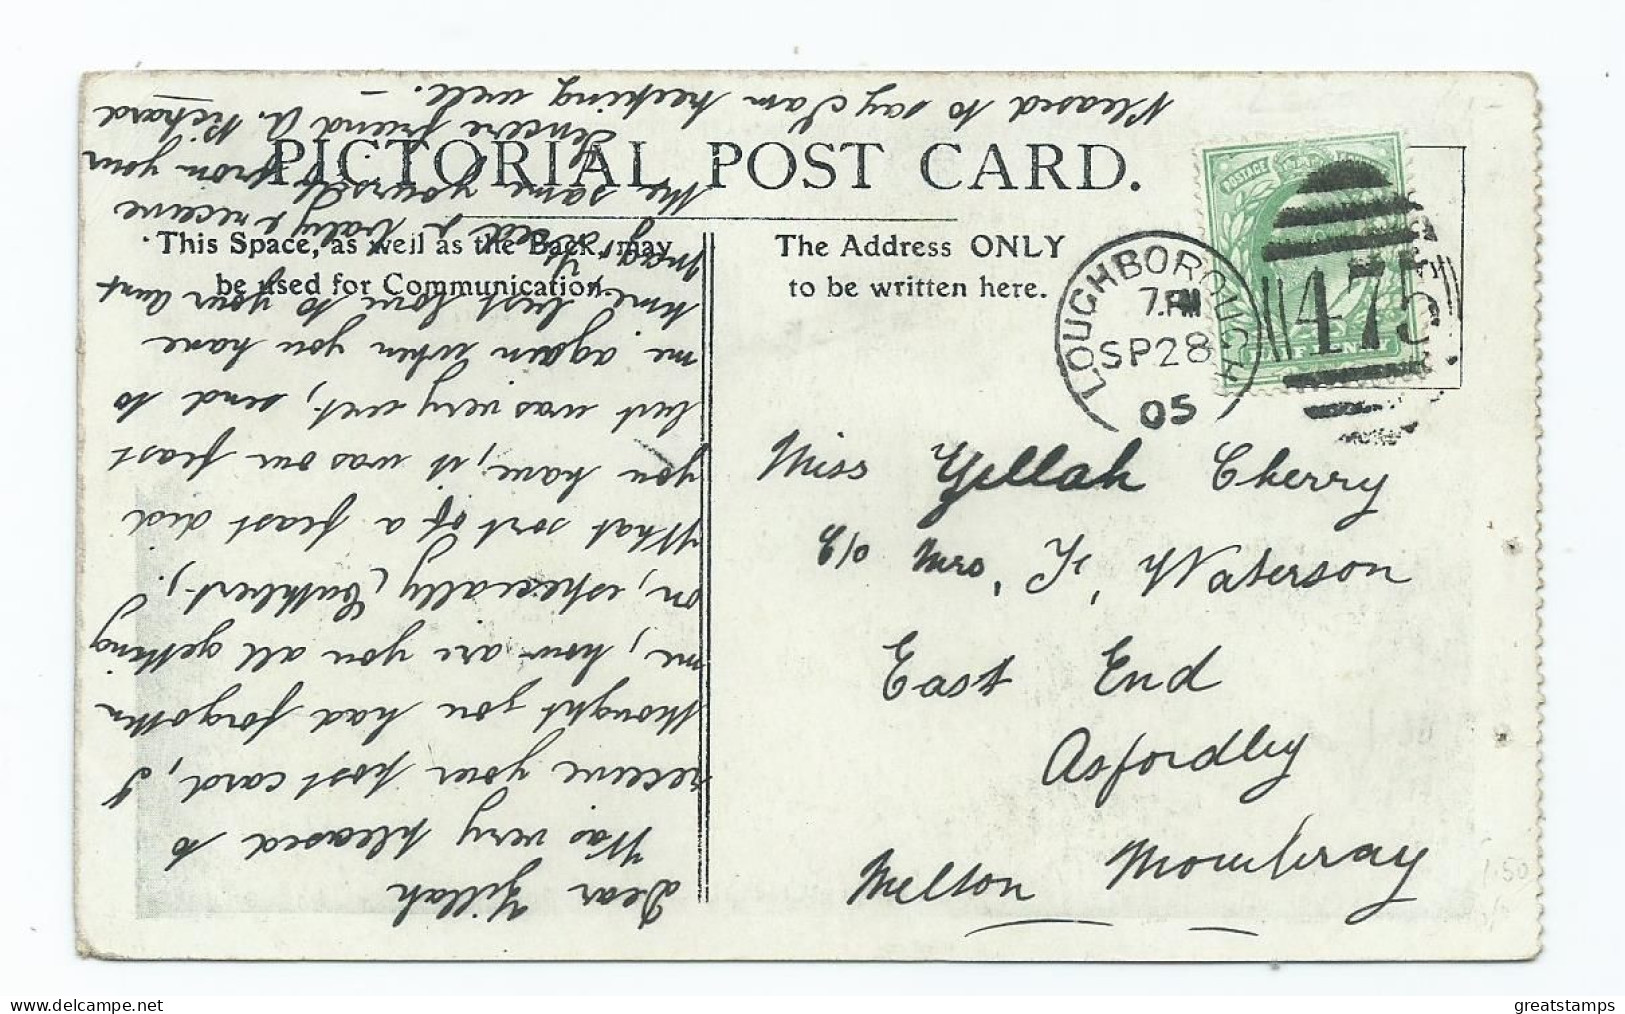 PICTORIAL POST CARD.
This Space, as well as the Back, may
be used for Communication.
The Address ONLY
to be written here.
LOUGHBOROUGH
7.PM
SP 28
05
475
POSTAGE
Miss Zillah Cherry
c/o Mrs, F, Waterson
East End
Asfordley
Melton Mowbray
Dear Zillah
Was very pleased to
receive your post card, I
thought you had forgotten
me, how are you all getting
on, especially (Cuthbert).
What sort of a feast did
you have, it was our feast
but was very wet, send to
me again when you have
time, best love to your aunt
receive
the same yourself from your
Sincere friend A. Richard
Pleased to say I am keeping well. –
1.50
greatstamps